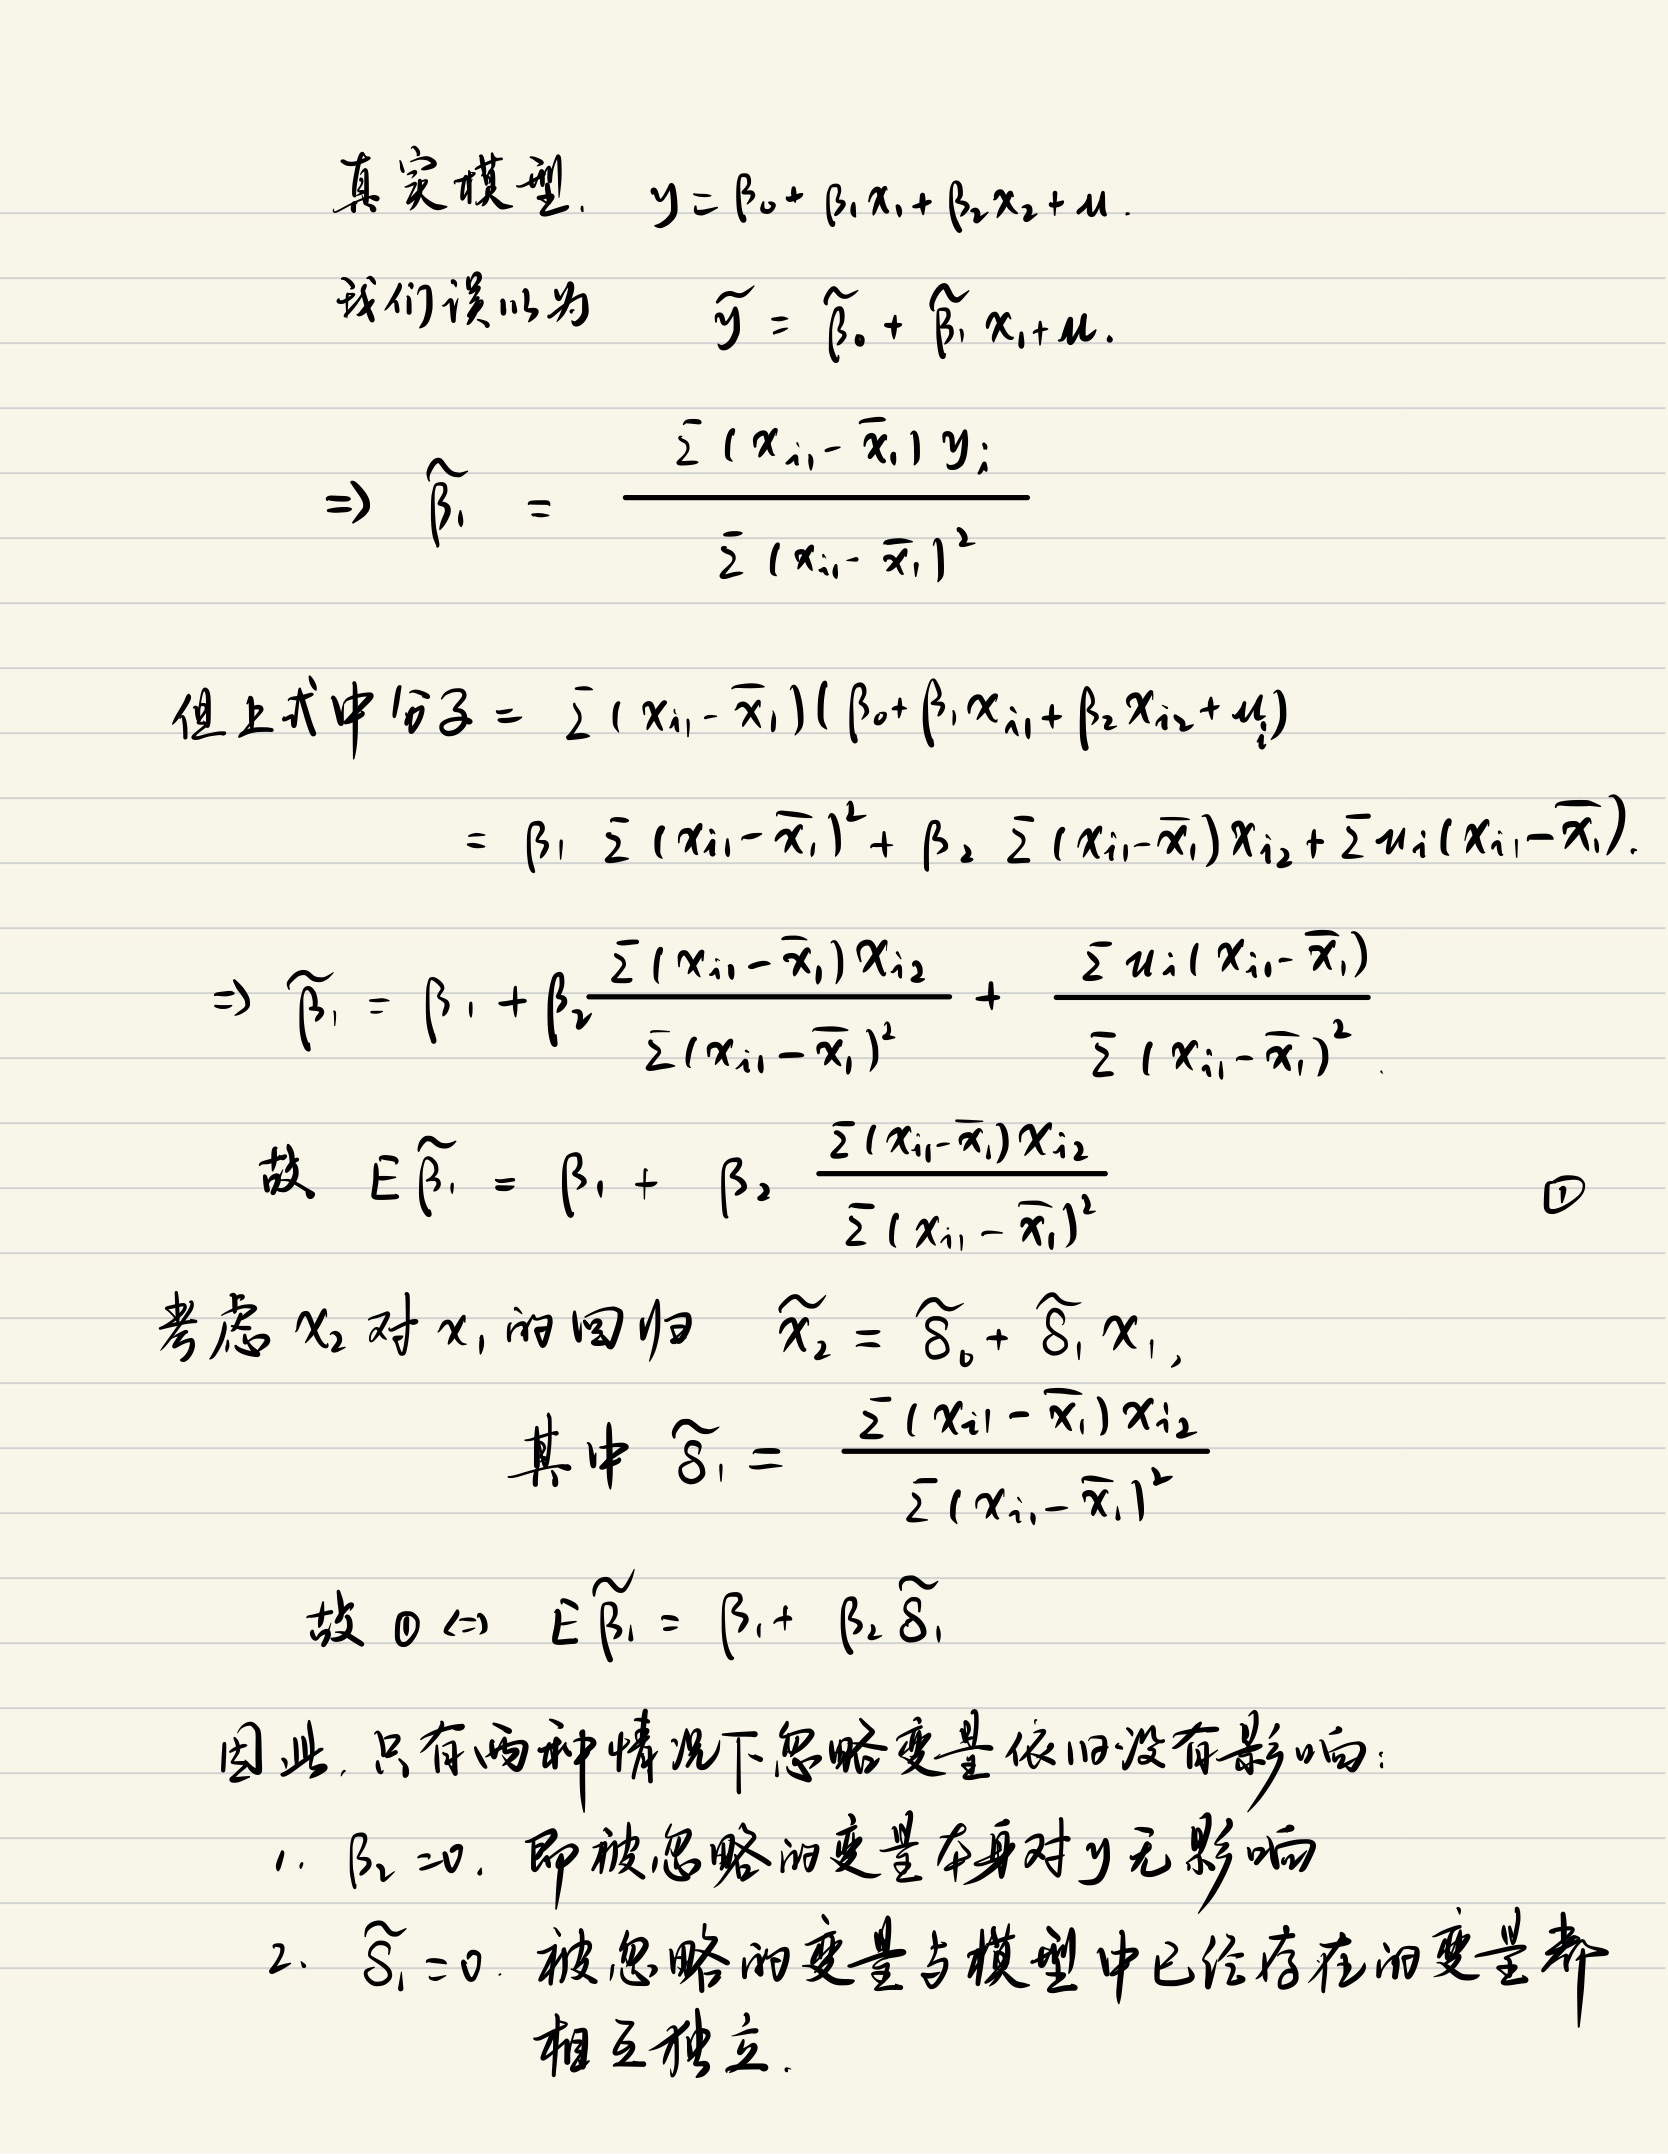 真实模型. y = β₀ + β₁x₁ + β₂x₂ + u.
我们误以为 ỹ = β̃₀ + β̃₁ x₁ + u.
⇒ β̃₁ = Σ(xᵢ₁ - x̄₁) yᵢ / Σ(xᵢ₁ - x̄₁)²
但上式中分子 = Σ(xᵢ₁ - x̄₁)(β₀ + β₁xᵢ₁ + β₂xᵢ₂ + uᵢ)
= β₁ Σ(xᵢ₁ - x̄₁)² + β₂ Σ(xᵢ₁ - x̄₁)xᵢ₂ + Σuᵢ(xᵢ₁ - x̄₁).
⇒ β̃₁ = β₁ + β₂ Σ(xᵢ₁ - x̄₁)xᵢ₂ / Σ(xᵢ₁ - x̄₁)² + Σuᵢ(xᵢ₁ - x̄₁) / Σ(xᵢ₁ - x̄₁)².
故 Eβ̃₁ = β₁ + β₂ Σ(xᵢ₁ - x̄₁)xᵢ₂ / Σ(xᵢ₁ - x̄₁)² ①
考虑 x₂ 对 x₁ 的回归 x̃₂ = δ̃₀ + δ̃₁ x₁,
其中 δ̃₁ = Σ(xᵢ₁ - x̄₁)xᵢ₂ / Σ(xᵢ₁ - x̄₁)²
故 ① ⇔ Eβ̃₁ = β₁ + β₂ δ̃₁
因此, 只有两种情况下忽略变量依旧没有影响:
1. β₂ = 0. 即被忽略的变量本身对 y 无影响
2. δ̃₁ = 0. 被忽略的变量与模型中已经存在的变量都
相互独立.